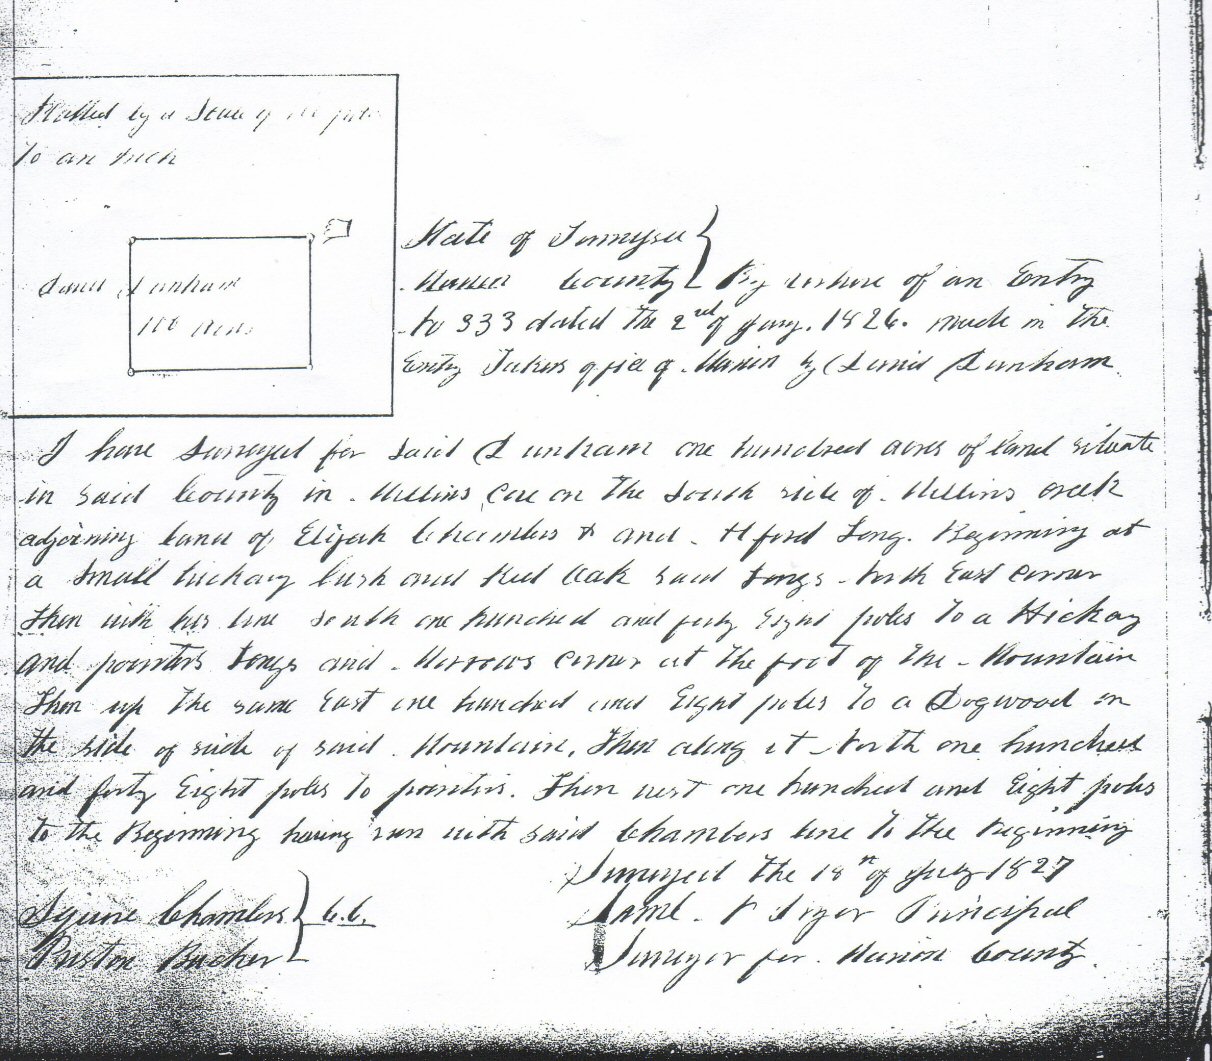 Platted by a Scale of 100 poles
To an inch
David Dunham
100 Acres
State of Tennessee
Marion County By virtue of an Entry
No 333 dated the 2nd of Jany. 1826. made in the
Entry Takers office of Marion by David Dunham
I have Surveyed for Said Dunham one hundred acres of land situate
in said County in Mullins Cove on the South side of Mullins creek
adjoining land of Elijah Chambers & and Alford Long. Beginning at
a Small hickory bush and Red Oak said Longs North East Corner
Then with his line South one hundred and forty Eight poles To a Hickory
and pointers Longs and Morrows Corner at the foot of the Mountain
Then up the same East one hundred and Eight poles To a Dogwood on
the side of side of said Mountain, Then along it North one hundred
and forty Eight poles to pointers. Then west one hundred and Eight poles
to the Beginning having run with said Chambers line To the Beginning
Surveyed the 18th of July 1827
Squire Chambers C.C. Saml. Pryor Principal
Preston Bucher Surveyor for Marion County.